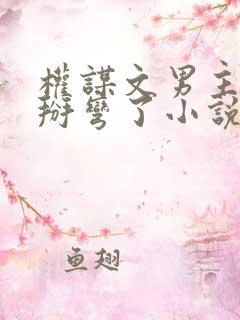 權謀文男主
掰彎了小說
魚翅